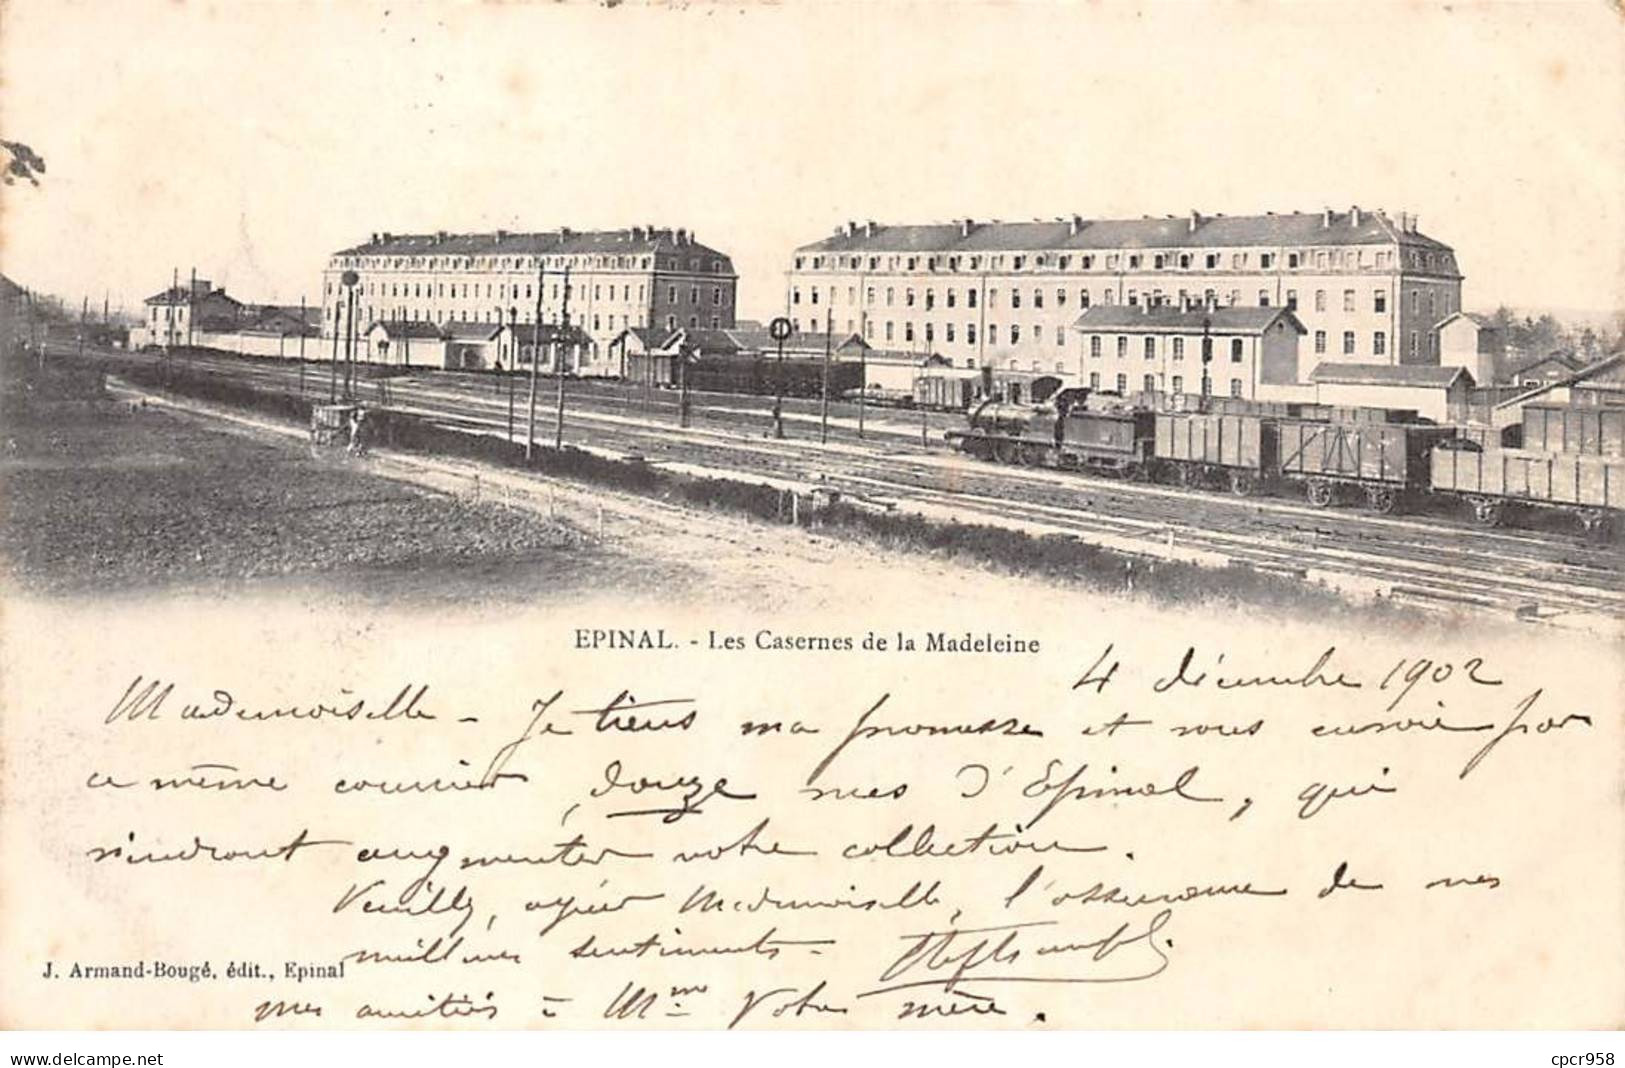 EPINAL. - Les Casernes de la Madeleine
4 décembre 1902
Mademoiselle - Je tiens ma promesse et vous envoie par
ce même courrier, douze vues d'Epinal, qui
viendront augmenter votre collection.
Veuillez, agréer Mademoiselle, l'assurance de mes
meilleurs sentiments -
J. Armand-Bougé, édit., Epinal
mes amitiés à Mme Votre mère.
delcampe.net
cpcr958